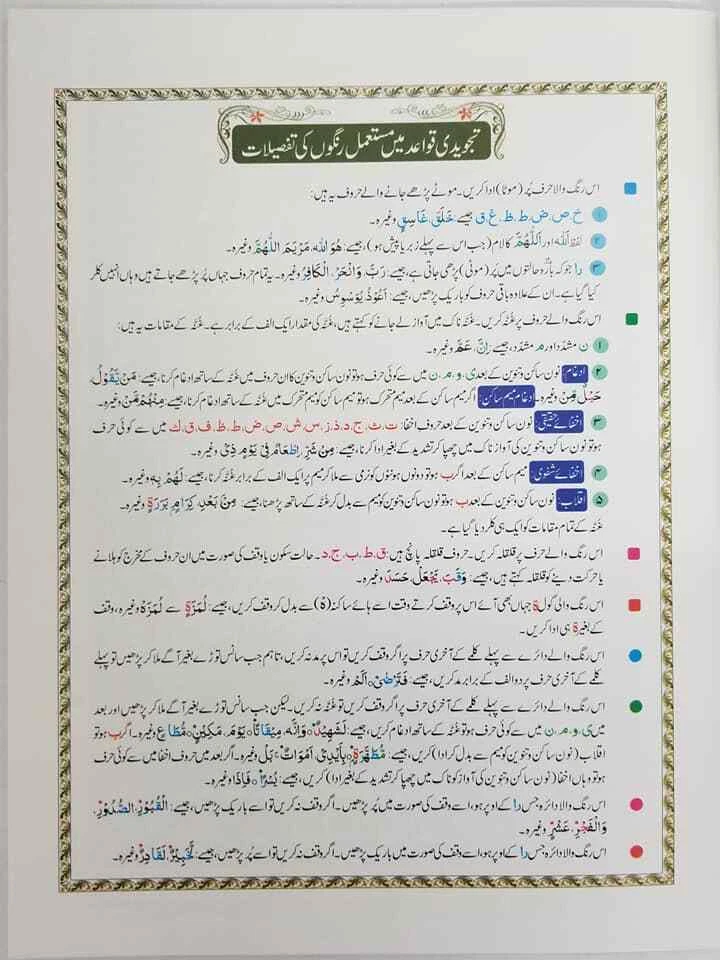 تجویدی قواعد میں مستعمل رنگوں کی تفصیلات
اس رنگ والا حرف پُر (موٹا) ادا کریں۔ موٹے پڑھے جانے والے حروف یہ ہیں:
۱ خ، ص، ض، ط، ظ، غ، ق جیسے: خَلَقَ، غَاسِقٍ وغیرہ۔
۲ لفظ اَللّٰه اور اَللّٰهُمَّ کا لام (جب اس سے پہلے زبر یا پیش ہو)، جیسے: هُوَ اللّٰهُ، مَرْيَمَ اللّٰهُمَّ وغیرہ۔
۳ را جو کہ بارہ حالتوں میں پُر (موٹی) پڑھی جاتی ہے، جیسے: رَبِّ، وَانْحَرْ، الْكَافِرُ وغیرہ۔ یہ تمام حروف جہاں پُر پڑھے جاتے ہیں وہاں انہیں کلر
کیا گیا ہے۔ ان کے علاوہ باقی حروف کو باریک پڑھیں، جیسے: اَعُوْذُ، يُوَسْوِسُ وغیرہ۔
اس رنگ والے حروف پر غنّہ کریں۔ غنّہ ناک میں آواز لے جانے کو کہتے ہیں، غنّہ کی مقدار ایک الف کے برابر ہے۔ غنّہ کے مقامات یہ ہیں:
۱ ن مشدّد اور م مشدّد، جیسے: اِنَّ، عَمَّ وغیرہ۔
۲ ادغام: نون ساکن و تنوین کے بعد ی، و، م، ن میں سے کوئی حرف ہو تو نون ساکن و تنوین کا ان حروف میں غنّہ کے ساتھ ادغام کرنا، جیسے: مَنْ يَّقُوْلُ،
حَبْلٌ مِّنْ وغیرہ۔ ادغام میم ساکن: اگر میم ساکن کے بعد میم متحرک ہو تو میم ساکن کو میم متحرک میں غنّہ کے ساتھ ادغام کرنا، جیسے: مِنْهُمْ مَّنْ وغیرہ۔
۳ اخفائے حقیقی: نون ساکن و تنوین کے بعد حروف اخفا: ت، ث، ج، د، ذ، ز، س، ش، ص، ض، ط، ظ، ف، ق، ك میں سے کوئی حرف
ہو تو نون ساکن و تنوین کی آواز ناک میں چھپا کر تشدید کے بغیر ادا کرنا، جیسے: مِنْ شَرِّ، اِطْعَامٌ فِيْ يَوْمٍ ذِيْ وغیرہ۔
۴ اخفائے شفوی: میم ساکن کے بعد اگر ب ہو تو دونوں ہونٹوں کو نرمی سے ملا کر میم پر ایک الف کے برابر غنّہ کرنا، جیسے: لَهُمْ بِهٖ وغیرہ۔
۵ اقلاب: نون ساکن و تنوین کے بعد ب ہو تو نون ساکن و تنوین کو میم سے بدل کر غنّہ کے ساتھ پڑھنا، جیسے: مِنْۢ بَعْدِ، كِرَامٍۭ بَرَرَةٍ وغیرہ۔
غنّہ کے تمام مقامات کو ایک ہی کلر دیا گیا ہے۔
اس رنگ والے حرف پر قلقلہ کریں۔ حروف قلقلہ پانچ ہیں: ق، ط، ب، ج، د۔ حالت سکون یا وقف کی صورت میں ان حروف کے مخرج کو ہلانے
یا حرکت دینے کو قلقلہ کہتے ہیں، جیسے: وَقَبَ، يَجْعَلْ، حَسَدَ وغیرہ۔
اس رنگ والی گول ة جہاں بھی آئے اس پر وقف کرتے وقت اسے ہائے ساکنہ (هْ) سے بدل کر وقف کریں، جیسے: لُمَزَةٍ سے لُمَزَهْ وغیرہ، وقف
کے بغیر ة ہی ادا کریں۔
اس رنگ والے دائرے سے پہلے کلمے کے آخری حرف پر اگر وقف کریں تو اس پر مد نہ کریں، تاہم جب سانس توڑے بغیر آگے ملا کر پڑھیں تو پہلے
کلمے کے آخری حرف پر دو الف کے برابر مد کریں، جیسے: فَتَرْضٰى اَلَمْ وغیرہ۔
اس رنگ والے دائرے سے پہلے کلمے کے آخری حرف پر اگر وقف کریں تو غنّہ نہ کریں۔ لیکن جب سانس توڑے بغیر آگے ملا کر پڑھیں اور بعد
میں ی، و، م، ن میں سے کوئی حرف ہو تو غنّہ کے ساتھ ادغام کریں، جیسے: لَشَهِيْدٌ وَاِنَّهٗ، مِيْقَاتًا يَوْمَ، مَكِيْنٍ مُّطَاعٍ وغیرہ۔ اگر ب ہو تو
اقلاب (نون ساکن و تنوین کو میم سے بدل کر ادا) کریں، جیسے: مُّطَهَّرَةٍۭ بِاَيْدِيْ، اَمْوَاتٌۢ بَلْ وغیرہ۔ اگر بعد میں حروف اخفا میں سے کوئی حرف
ہو تو وہاں اخفا (نون ساکن و تنوین کی آواز کو ناک میں چھپا کر تشدید کے بغیر ادا) کریں، جیسے: يُسْرًا فَاِذَا وغیرہ۔
اس رنگ والا دائرہ جس را کے اوپر ہو، اسے وقف کی صورت میں پُر پڑھیں۔ اگر وقف نہ کریں تو اسے باریک پڑھیں، جیسے: الْقُبُوْرِ، الصُّدُوْرِ،
وَالْفَجْرِ، عَشْرٍ وغیرہ۔
اس رنگ والا دائرہ جس را کے اوپر ہو، اسے وقف کی صورت میں باریک پڑھیں۔ اگر وقف نہ کریں تو اسے پُر پڑھیں، جیسے: لَّخَبِيْرٌ، لَقَادِرٌ وغیرہ۔